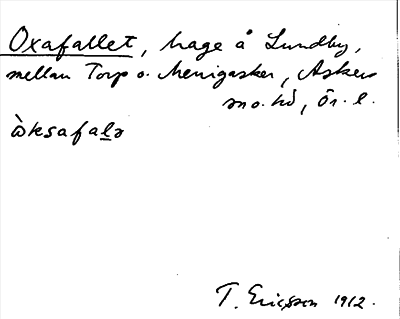 Oxafallet, hage å Lundby,
mellan Torp o. Menigasker, Askers
sn o. hd, Ör. l.
òksafalə
T. Ericsson 1912.